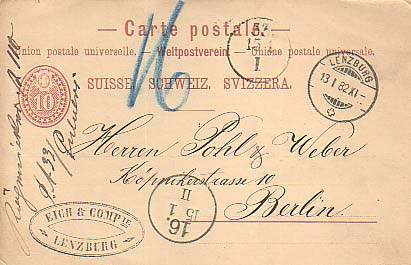 Carte postale.
Union postale universelle. Weltpostverein. Unione postale universale.
SUISSE. SCHWEIZ. SVIZZERA.
10
16
15 1
I
LENZBURG
13 I 82 XI
Herren Pohl & Weber
Köpnikerstrasse 10
Berlin.
16.
15 1
II
EICH & COMP.IE
LENZBURG